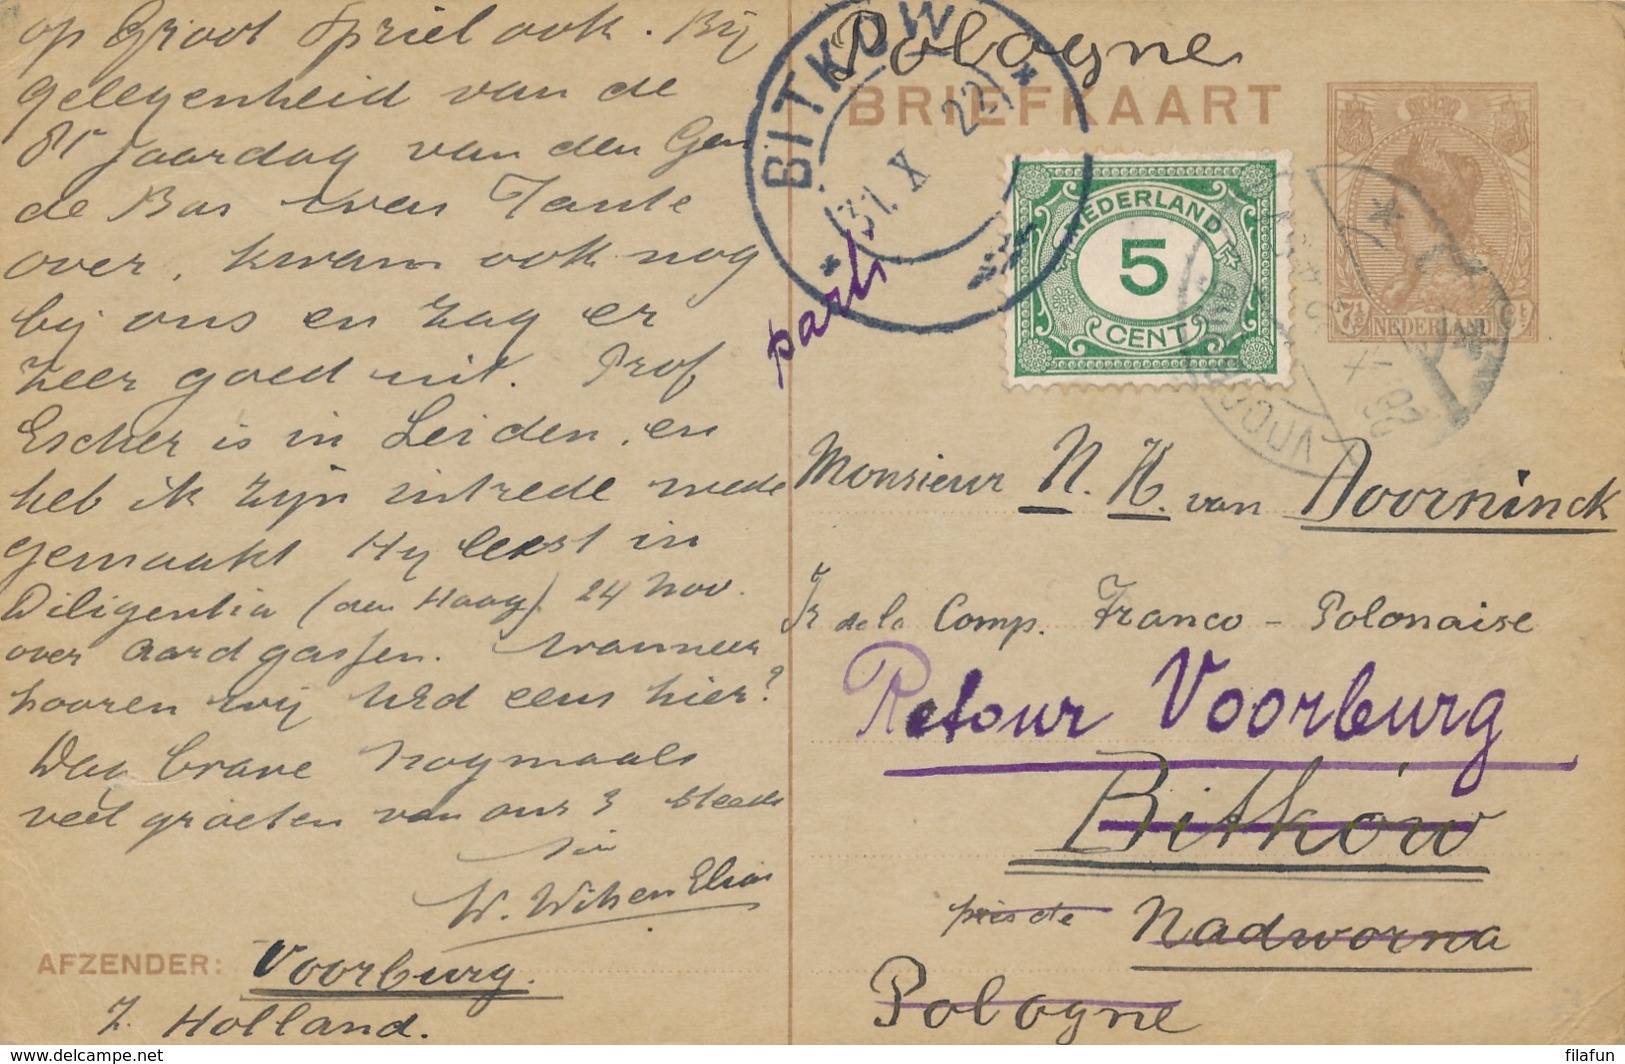 op Groot Spriel ook. Bij
gelegenheid van de
jaardag van den Gen
de Bas even Tante
over, kwam ook nog
bij ons en zag er
zeer goed uit. Prof
Escher is in Leiden, en
heb ik zijn intrede mede
gemaakt Hy leest in
Diligentia (den Haag) 24 Nov.
over Aardgassen. Wanneer
hooren wij U Ed eens hier?
Dag brave nogmaals
veel groeten van ons 3 steeds
AFZENDER: Voorburg.
Z. Holland.
Pologne
BRIEFKAART
BITKOW
31. X 22
parti
NEDERLAND
5
CENT
7½ Ct
NEDERLAND
Monsieur N. H. van Doorninck
Ir de la Comp. Franco - Polonaise
Retour Voorburg
Bitków
près de Nadworna
Pologne
delcampe.net
filafun